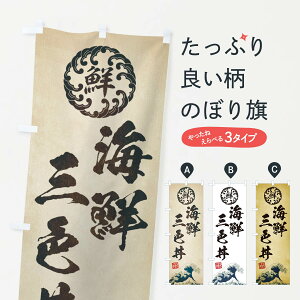 鮮
海鮮
三色丼
たっぷり
良い柄
のぼり旗
やったね
えらべる3タイプ
A
B
C
海鮮
三色丼
海鮮
三色丼
海鮮
三色丼